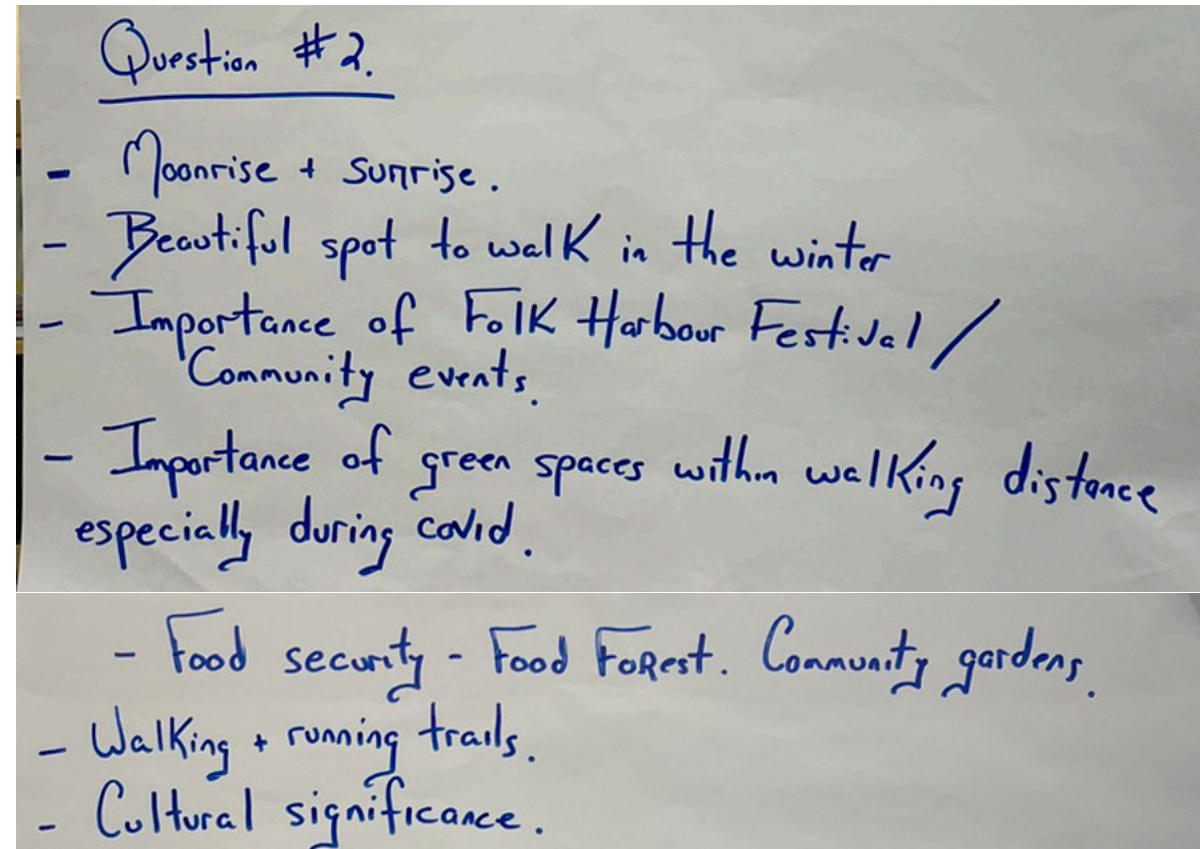 Question #2.
- Moonrise + sunrise.
- Beautiful spot to walk in the winter
- Importance of Folk Harbour Festival /
Community events.
- Importance of green spaces within walking distance
especially during covid.
- Food security - Food FoRest. Community gardens.
- Walking + running trails.
- Cultural significance.